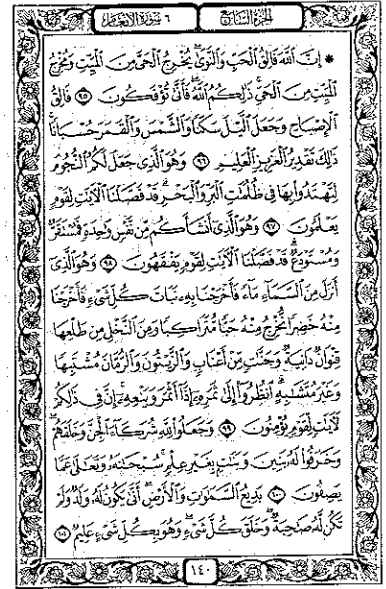 الجزء السابع
٦ سورة الأنعام
* إِنَّ ٱللَّهَ فَالِقُ ٱلْحَبِّ وَٱلنَّوَىٰ يُخْرِجُ ٱلْحَىَّ مِنَ ٱلْمَيِّتِ وَمُخْرِجُ
ٱلْمَيِّتِ مِنَ ٱلْحَىِّ ذَٰلِكُمُ ٱللَّهُ فَأَنَّىٰ تُؤْفَكُونَ ٩٥ فَالِقُ
ٱلْإِصْبَاحِ وَجَعَلَ ٱلَّيْلَ سَكَنًا وَٱلشَّمْسَ وَٱلْقَمَرَ حُسْبَانًا
ذَٰلِكَ تَقْدِيرُ ٱلْعَزِيزِ ٱلْعَلِيمِ ٩٦ وَهُوَ ٱلَّذِى جَعَلَ لَكُمُ ٱلنُّجُومَ
لِتَهْتَدُوا۟ بِهَا فِى ظُلُمَٰتِ ٱلْبَرِّ وَٱلْبَحْرِ قَدْ فَصَّلْنَا ٱلْءَايَٰتِ لِقَوْمٍ
يَعْلَمُونَ ٩٧ وَهُوَ ٱلَّذِىٓ أَنشَأَكُم مِّن نَّفْسٍ وَٰحِدَةٍ فَمُسْتَقَرٌّ
وَمُسْتَوْدَعٌ قَدْ فَصَّلْنَا ٱلْءَايَٰتِ لِقَوْمٍ يَفْقَهُونَ ٩٨ وَهُوَ ٱلَّذِىٓ
أَنزَلَ مِنَ ٱلسَّمَآءِ مَآءً فَأَخْرَجْنَا بِهِۦ نَبَاتَ كُلِّ شَىْءٍ فَأَخْرَجْنَا
مِنْهُ خَضِرًا نُّخْرِجُ مِنْهُ حَبًّا مُّتَرَاكِبًا وَمِنَ ٱلنَّخْلِ مِن طَلْعِهَا
قِنْوَانٌ دَانِيَةٌ وَجَنَّٰتٍ مِّنْ أَعْنَابٍ وَٱلزَّيْتُونَ وَٱلرُّمَّانَ مُشْتَبِهًا
وَغَيْرَ مُتَشَٰبِهٍ ٱنظُرُوٓا۟ إِلَىٰ ثَمَرِهِۦٓ إِذَآ أَثْمَرَ وَيَنْعِهِۦٓ إِنَّ فِى ذَٰلِكُمْ
لَءَايَٰتٍ لِّقَوْمٍ يُؤْمِنُونَ ٩٩ وَجَعَلُوا۟ لِلَّهِ شُرَكَآءَ ٱلْجِنَّ وَخَلَقَهُمْ
وَخَرَقُوا۟ لَهُۥ بَنِينَ وَبَنَٰتٍۭ بِغَيْرِ عِلْمٍ سُبْحَٰنَهُۥ وَتَعَٰلَىٰ عَمَّا
يَصِفُونَ ١٠٠ بَدِيعُ ٱلسَّمَٰوَٰتِ وَٱلْأَرْضِ أَنَّىٰ يَكُونُ لَهُۥ وَلَدٌ وَلَمْ
تَكُن لَّهُۥ صَٰحِبَةٌ وَخَلَقَ كُلَّ شَىْءٍ وَهُوَ بِكُلِّ شَىْءٍ عَلِيمٌ ١٠١
١٤٠